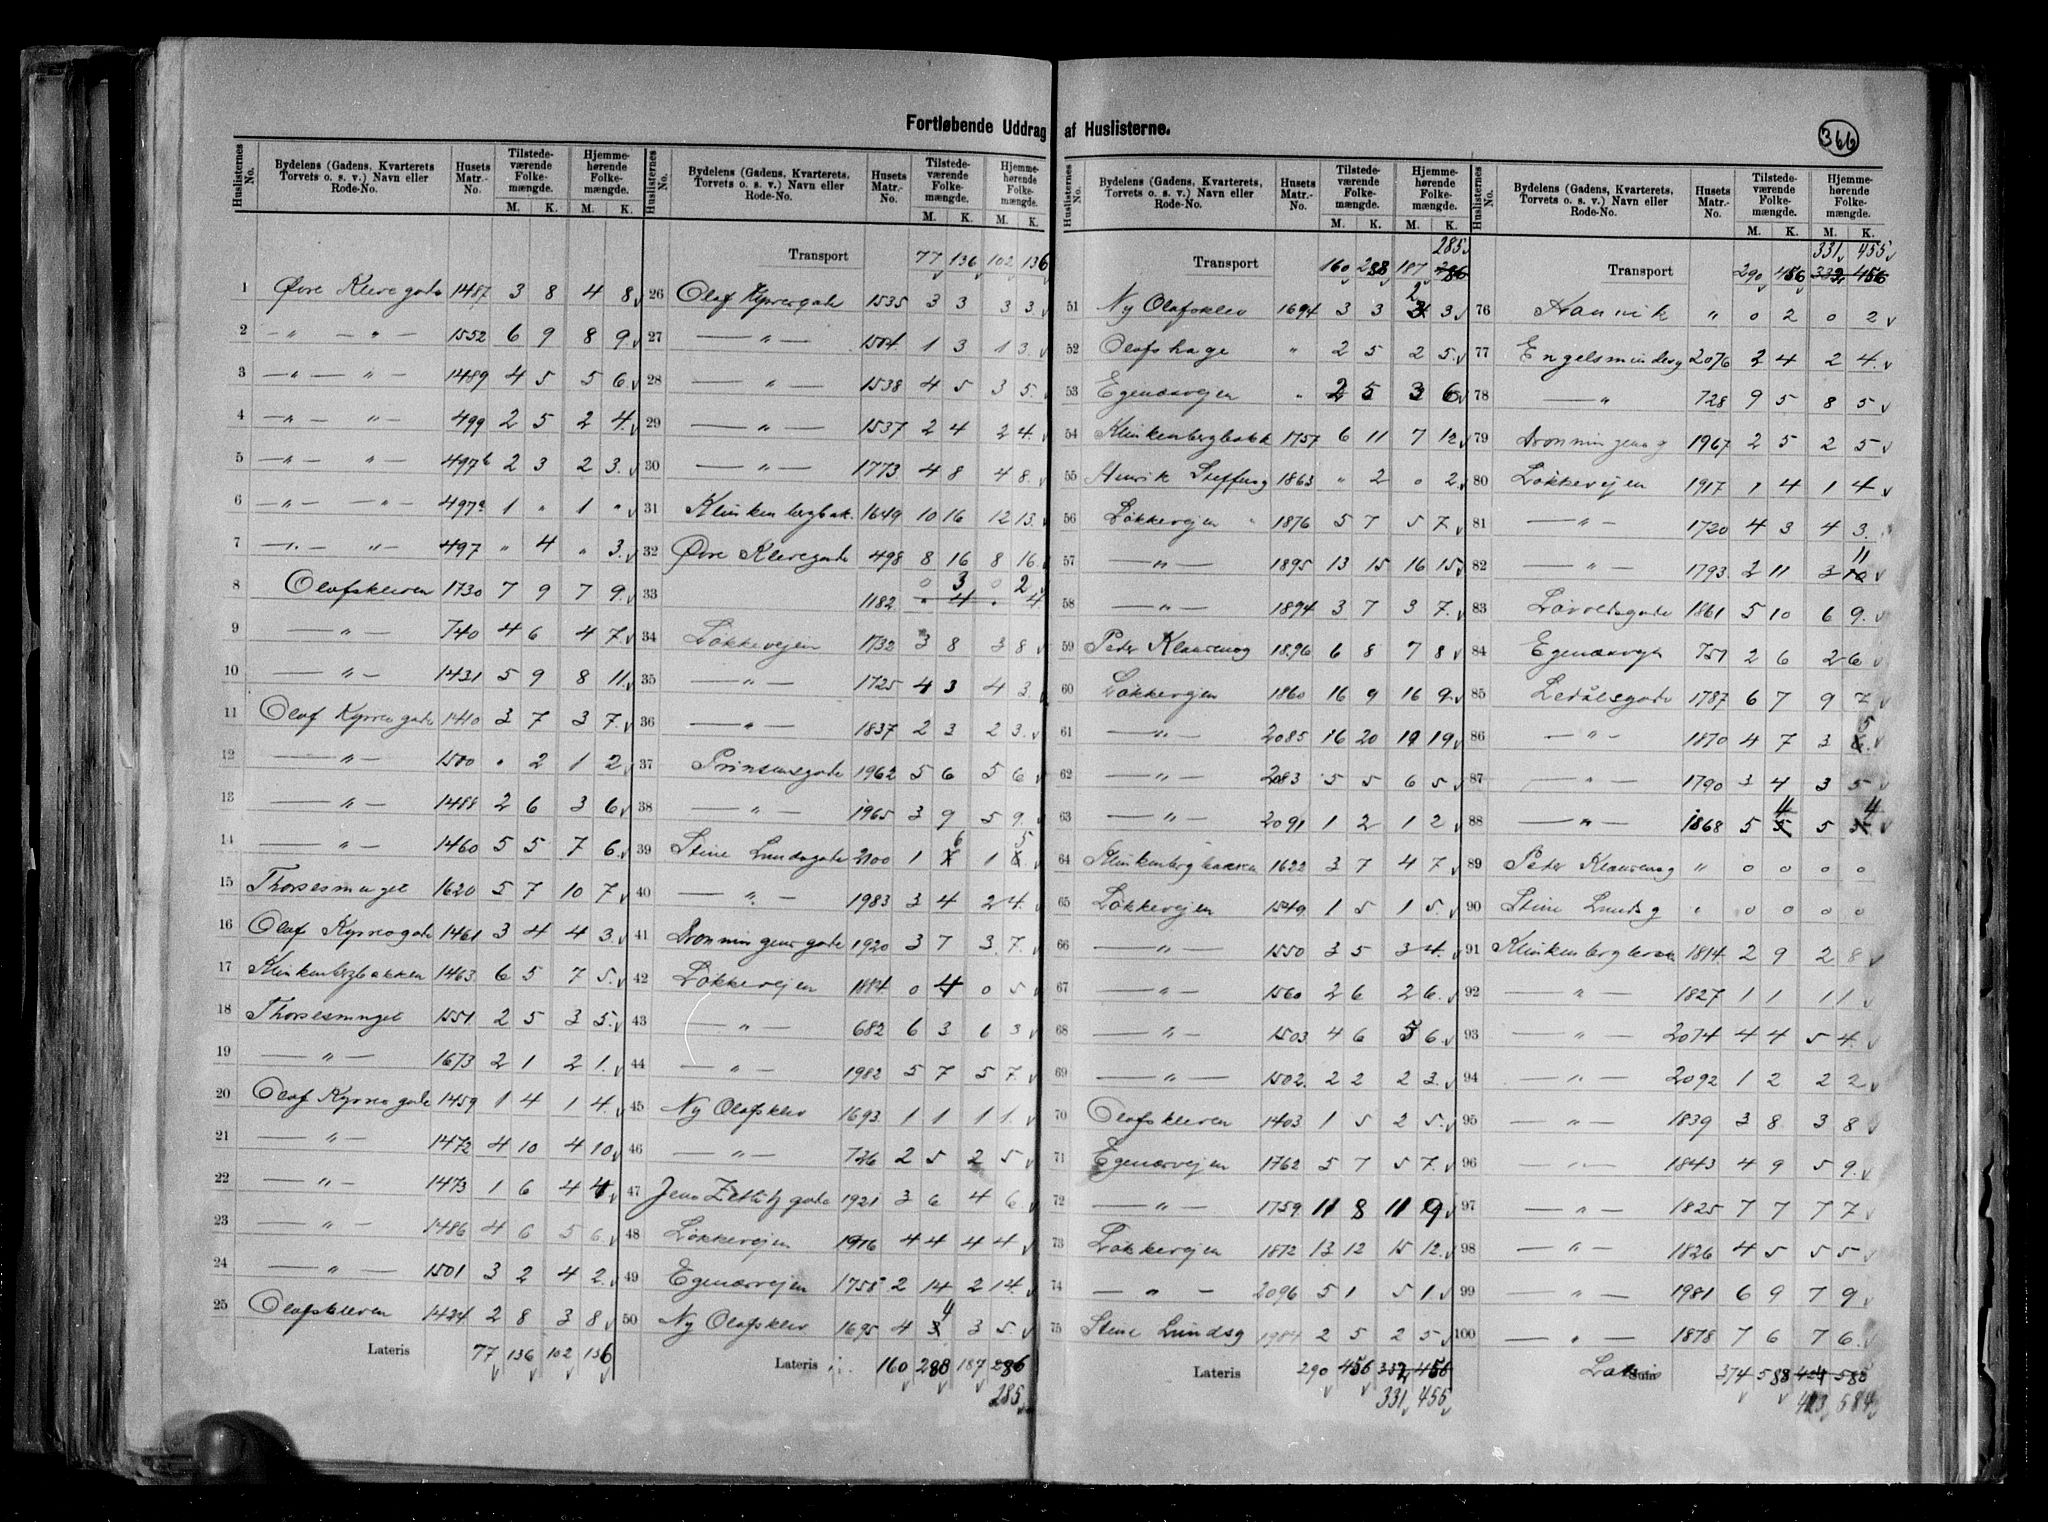 Fortløbende Uddrag af Huslisterne.
366
Huslisternes No. Bydelens (Gadens, Kvarterets Torvets o. s. v.) Navn eller Rode-No. Husets Matr.-No. Tilstede-værende Folke-mængde. Hjemme-hørende Folke-mængde.
M. K. M. K.
1 Øvre Klevegade 1487 3 8 4 8
2 -„- -„- 1552 6 9 8 9
3 -„- -„- 1489 4 5 5 6
4 -„- „- 499 2 5 2 4
5 -„- „- 497b 2 3 2 3
6 -„- -„- 497a 1 „ 1 „
7 -„- „- 497 „ 4 „ 3
8 Olafskleven 1730 7 9 7 9
9 -„- 740 4 6 4 7
10 -„- 1431 5 9 8 11
11 Olaf Kyrresgade 1410 3 7 3 7
12 -„- 1500 „ 2 1 2
13 -„- 1488 2 6 3 6
14 -„- 1460 5 5 7 6
15 Thorsesmuget 1620 5 7 10 7
16 Olaf Kyrresgade 1461 3 4 4 3
17 Klinkenbergbakken 1463 6 5 7 5
18 Thorsesmuget 1551 2 5 3 5
19 -„- 1673 2 1 2 1
20 Olaf Kyrresgade 1459 1 4 1 4
21 -„- 1472 4 10 4 10
22 -„- 1473 1 6 4 4
23 -„- 1486 4 6 5 6
24 -„- 1501 3 2 4 2
25 Olafskleven 1424 2 8 3 8
Lateris 77 136 102 136
Huslisternes No. Bydelens (Gadens, Kvarterets, Torvets o. s. v.) Navn eller Rode-No. Husets Matr.-No. Tilstede-værende Folke-mængde. Hjemme-hørende Folke-mængde.
M. K. M. K.
Transport 77 136 102 136
26 Olaf Kyrresgade 1535 3 3 3 3
27 -„- 1504 1 3 1 3
28 -„- 1538 4 5 3 5
29 -„- 1537 2 4 2 4
30 -„- 1773 4 8 4 8
31 Klinkenbergbak. 1649 10 16 12 13
32 Øvre Klevegade 498 8 16 8 16
0 3 0 2
33 1182 „ 4 „ 4
34 Løkkevejen 1732 3 8 3 8
35 -„- 1725 4 3 4 3
36 -„- 1837 2 3 2 3
37 Prinsensgade 1962 5 6 5 6
38 -„- 1965 3 9 5 9
6 5
39 Stine Lundsgade 2100 1 1
40 -„- 1983 3 4 2 4
41 Dronningensgade 1920 3 7 3 7
42 Løkkevejen 1884 0 4 0 5
43 -„- 682 6 3 6 3
44 -„- 1982 5 7 5 7
45 Ny Olafsklev 1693 1 1 1 1
46 -„- 726 2 5 2 5
47 Jens Zetlitzgade 1921 3 6 4 6
48 Løkkevejen 1916 4 4 4 4
49 Egenæsvejen 1758 2 14 2 14
4
50 Ny Olafsklev 1695 4 3 3 5
Lateris 160 288 187 286
285
Huslisternes No. Bydelens (Gadens, Kvarterets, Torvets o. s. v.) Navn eller Rode-No. Husets Matr.-No. Tilstede-værende Folke-mængde. Hjemme-hørende Folke-mængde.
M. K. M. K.
285
Transport 160 288 187 286
2
51 Ny Olafsklev 1694 3 3 3 3
52 Olafshage „ 2 5 2 5
53 Egenæsvejen „ 2 5 3 6
54 Klinkenbergbakk 1757 6 11 7 12
55 Henrik Steffensg 1863 „ 2 0 2
56 Løkkevejen 1876 5 7 5 7
57 -„- 1895 13 15 16 15
58 -„- 1894 3 7 3 7
59 Peder Klausensg 1896 6 8 7 8
60 Løkkevejen 1860 16 9 16 9
61 -„- 2085 16 20 19 19
62 -„- 2083 5 5 6 5
63 -„- 2091 1 2 1 2
64 Klinkenbergbakken 1622 3 7 4 7
65 Løkkevejen 1549 1 5 1 5
66 -„- 1550 3 5 3 4
67 -„- 1560 2 6 2 6
68 -„- 1503 4 6 5 6
69 -„- 1502 2 2 2 3
70 Olafskleven 1403 1 5 2 5
71 Egenæsvejen 1762 5 7 5 7
72 -„- 1759 11 8 11 9
73 Løkkevejen 1872 13 12 15 12
74 -„- 2096 5 1 5 1
75 Stine Lundsg 1984 2 5 2 5
Lateris 290 456 332 456
331 455
Huslisternes No. Bydelens (Gadens, Kvarterets, Torvets o. s. v.) Navn eller Rode-No. Husets Matr.-No. Tilstede-værende Folke-mængde. Hjemme-hørende Folke-mængde.
M. K. M. K.
331 455
Transport 290 456 332 456
76 „ 0 2 0 2
77 Engelsmindesg 2076 2 4 2 4
78 -„ 728 9 5 8 5
79 Dronningensg 1967 2 5 2 5
80 Løkkevejen 1917 1 4 1 4
81 -„- 1720 4 3 4 3
11
82 -„- 1793 2 11 3 10
83 Løvoldsgade 1861 5 10 6 9
84 Egenæsvejen 751 2 6 2 6
85 Ledålsgade 1787 6 7 9 7
5
86 -„- 1870 4 7 3 6
87 -„- 1790 3 4 3 5
4 4
88 -„- 1868 5 5 5 5
89 Peder Klausensg „ 0 0 0 0
90 Stine Lundsg „ 0 0 0 0
91 Klinkenbergbak 1814 2 9 2 8
92 -„- 1827 1 1 1 1
93 -„- 2074 4 4 5 4
94 -„- 2092 1 2 2 2
95 -„- 1839 3 8 3 8
96 -„- 1843 4 9 5 9
97 -„- 1825 7 7 7 7
98 -„- 1826 4 5 5 5
99 -„- 1981 6 9 7 9
100 -„- 1878 7 6 7 6
Lateris 374 588 424 585
423 584